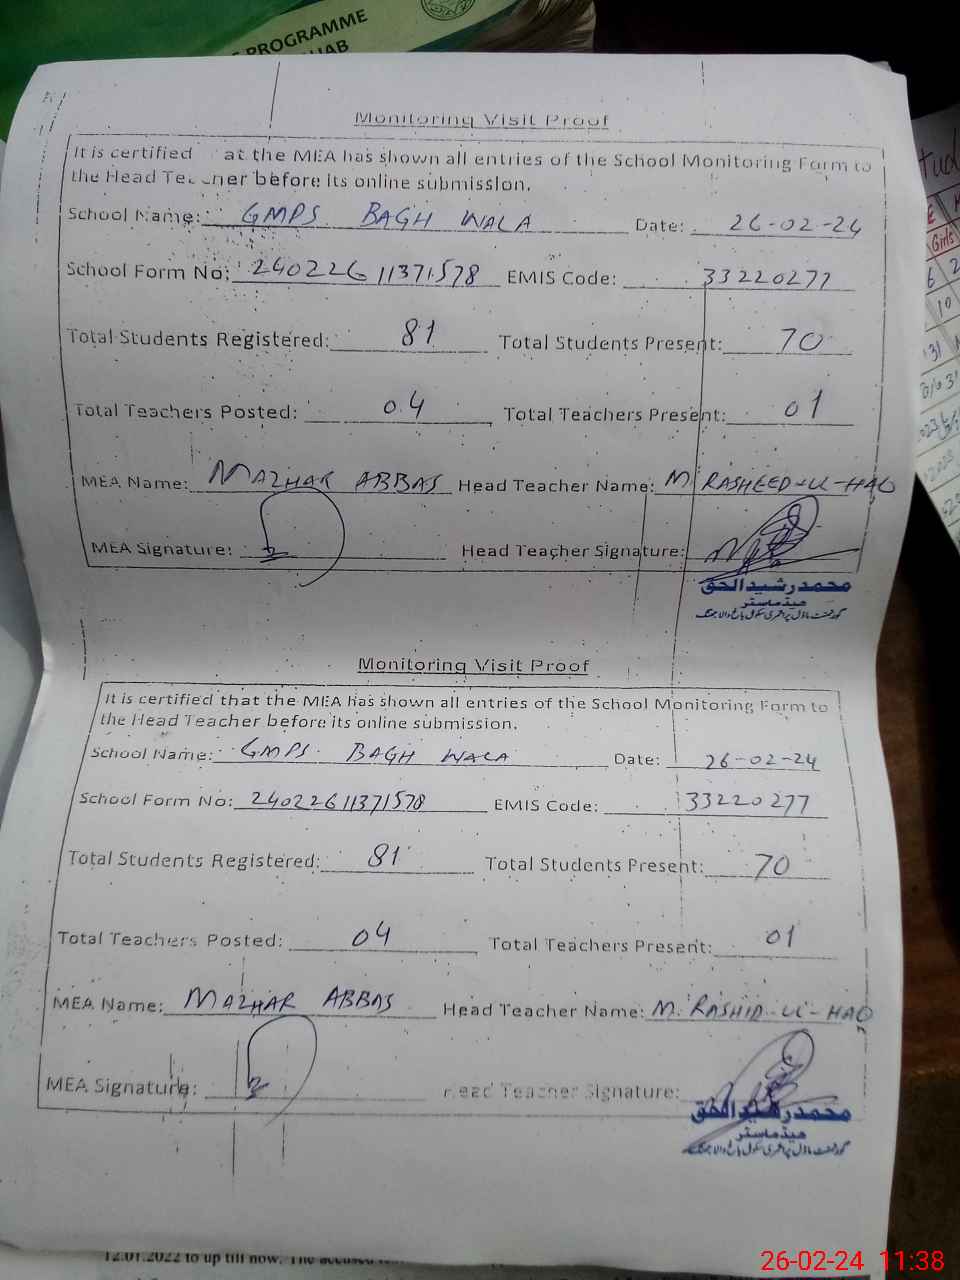 PROGRAMME
Monitoring Visit Proof
It is certified at the MEA has shown all entries of the School Monitoring Form to
the Head Teacher before its online submission.
School Name: GMPS BAGH WALA Date: 26-02-24
School Form No: 24022611371578 EMIS Code: 33220277
Total Students Registered: 81 Total Students Present: 70
Total Teachers Posted: 04 Total Teachers Present: 01
MEA Name: MAZHAR ABBAS Head Teacher Name: M. RASHEED-UL-HAQ
MEA Signature: Head Teacher Signature:
محمد رشید الحق
ہیڈماسٹر
گورنمنٹ ماڈل پرائمری سکول باغ والا جھنگ
Monitoring Visit Proof
It is certified that the MEA has shown all entries of the School Monitoring Form to
the Head Teacher before its online submission.
School Name: GMPS. BAGH WALA Date: 26-02-24
School Form No: 24022611371578 EMIS Code: 33220277
Total Students Registered: 81 Total Students Present: 70
Total Teachers Posted: 04 Total Teachers Present: 01
MEA Name: MAZHAR ABBAS Head Teacher Name: M. RASHID-UL-HAQ
MEA Signature: Head Teacher Signature:
محمد رشید الحق
ہیڈماسٹر
گورنمنٹ ماڈل پرائمری سکول باغ والا جھنگ
12.01.2022 to up till now. The accused
Girls
26-02-24 11:38